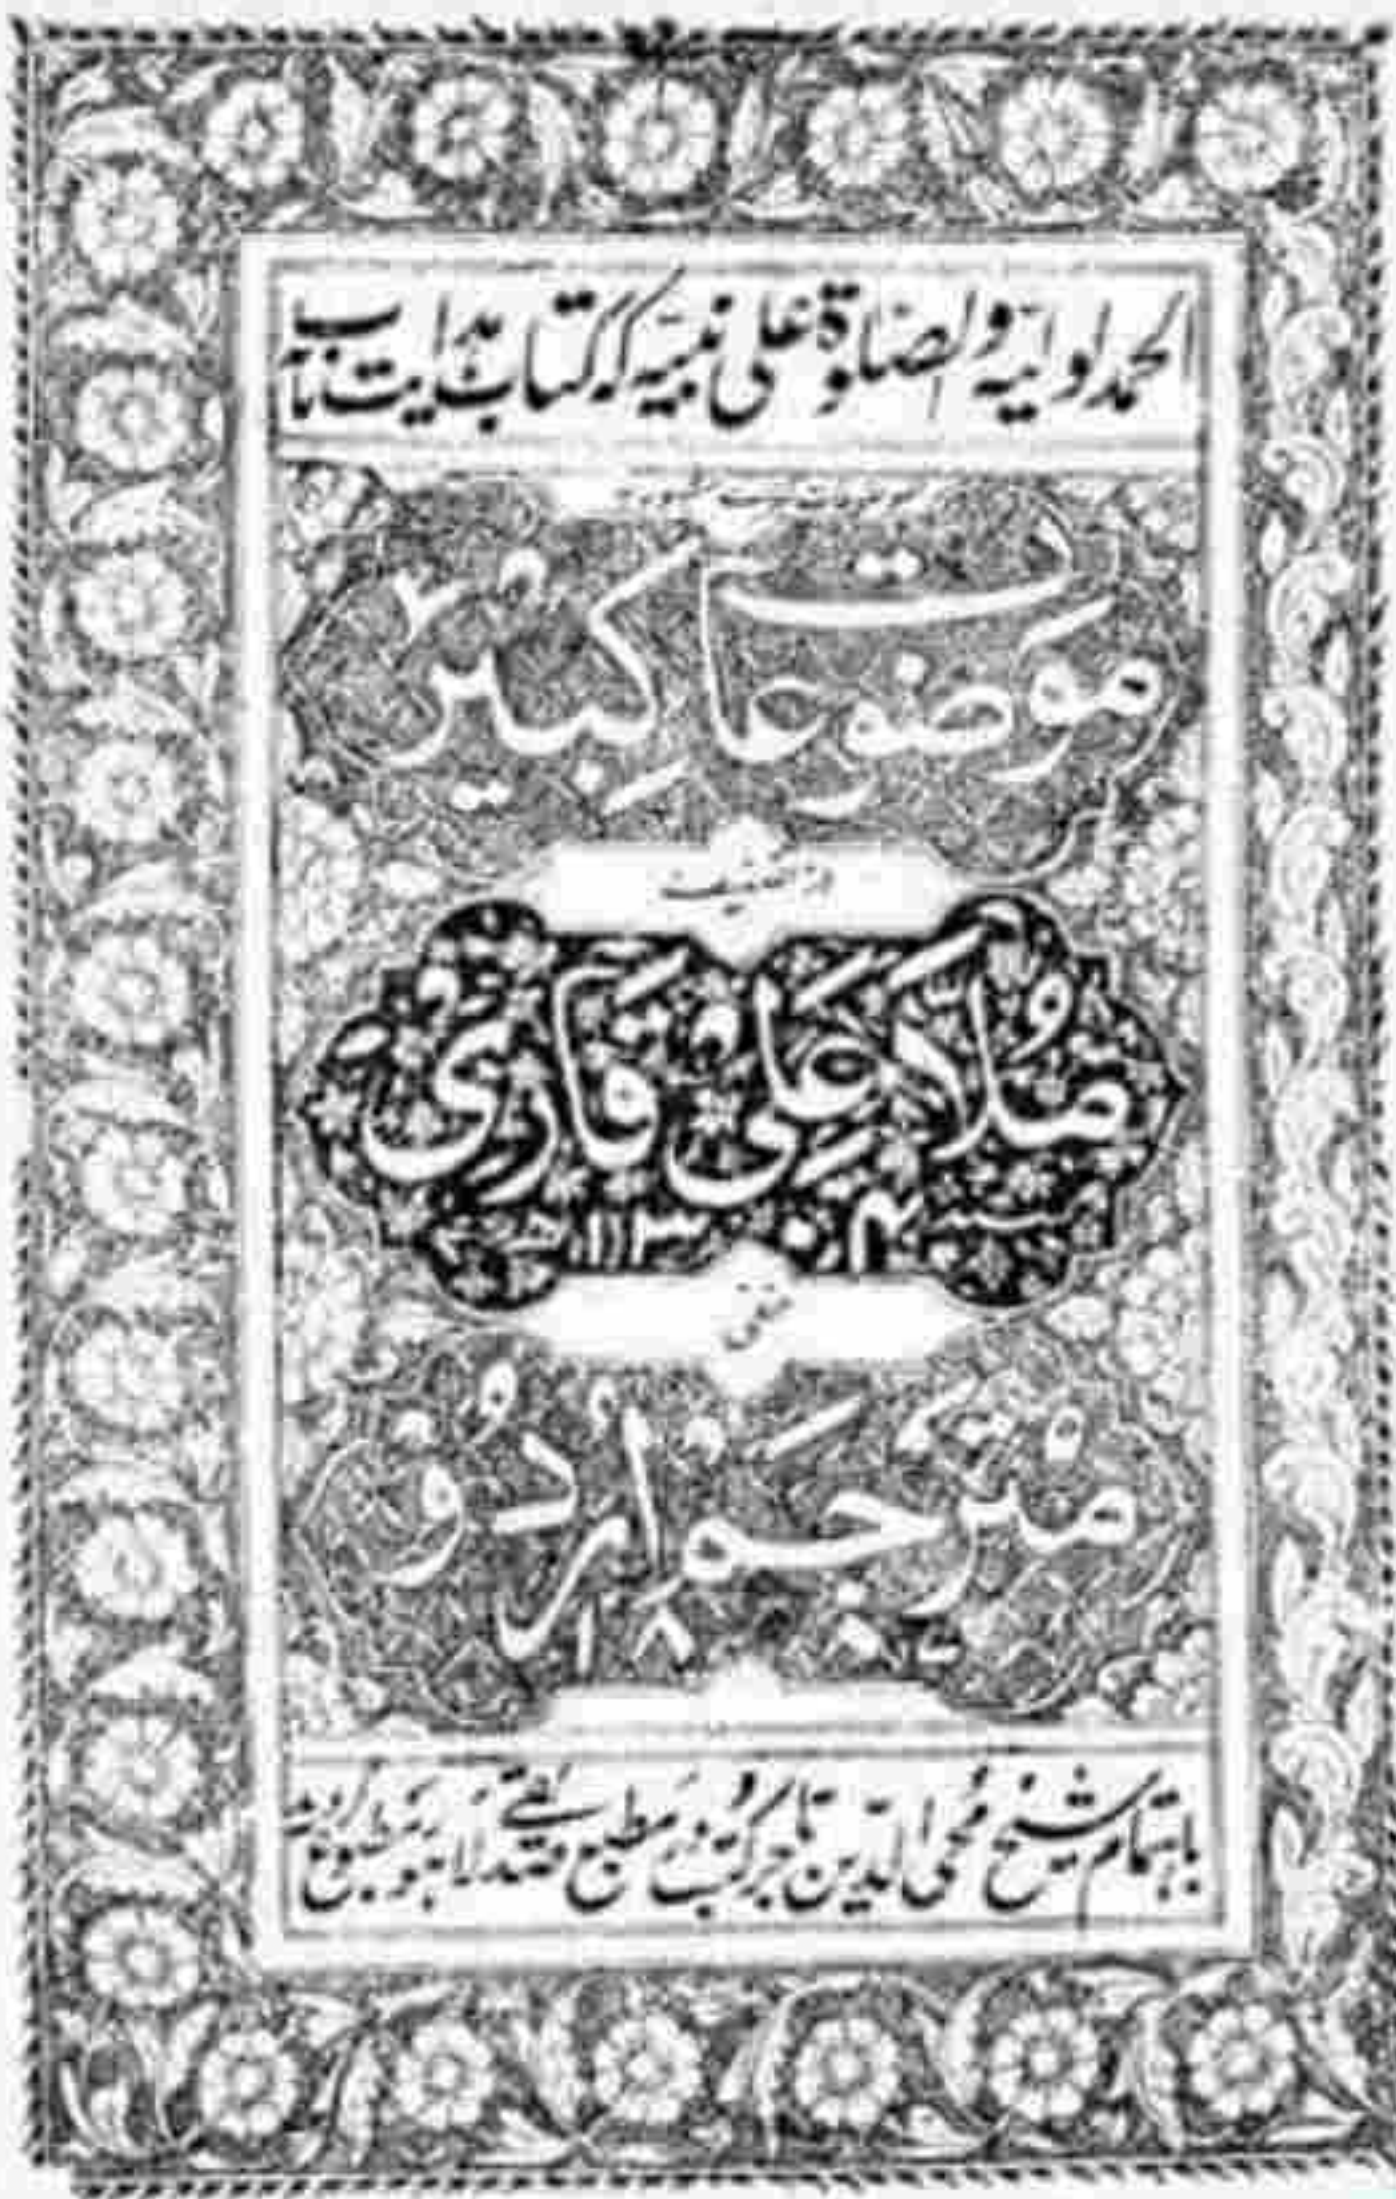 الحمد لولیہ والصلوة علی نبیہ کہ کتاب ہدایت
موضوعات کبیر
از تصنیف
ملا علی قاری
حنفی
مترجم اردو
باہتمام شیخ محی الدین تاجر کتب و مطبع لاہور مطبوع